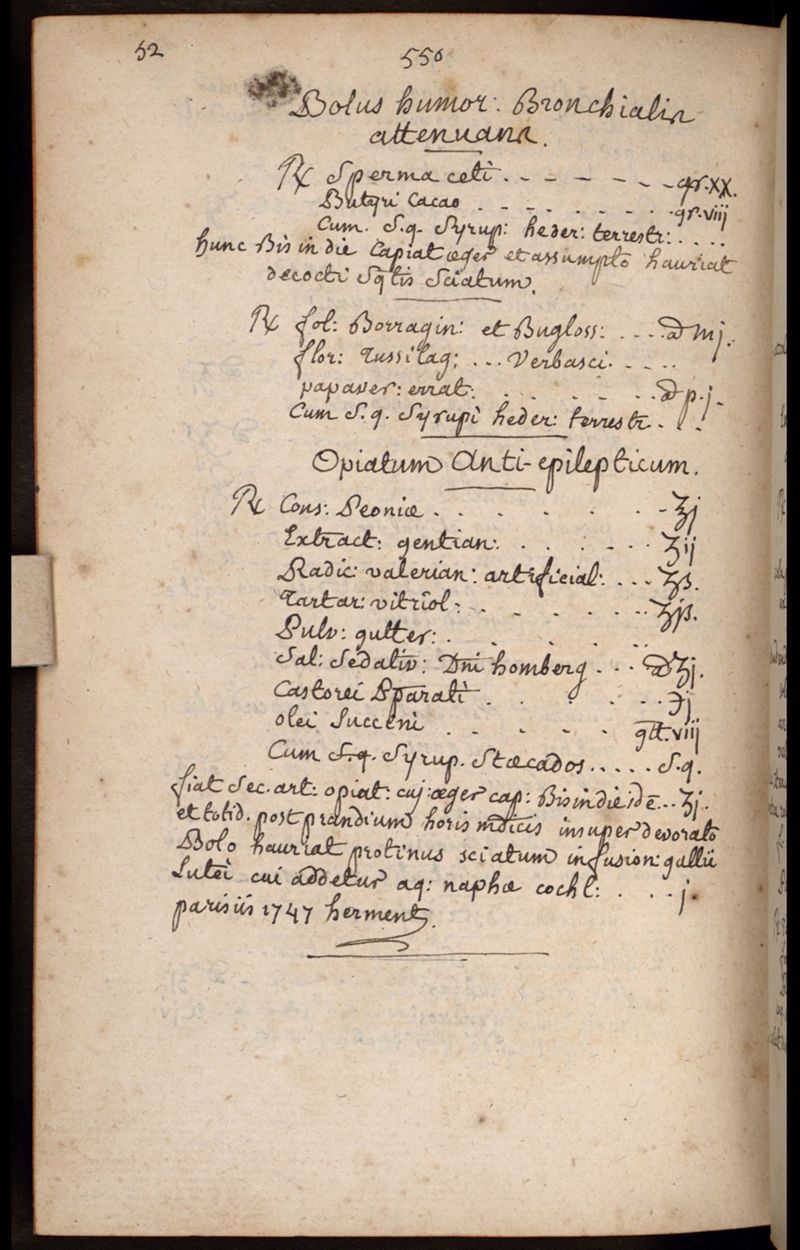 52
556
Bolus humor: Bronchialia
attenuans.
℞ Sperma ceti . - - - - . - gr.XX.
Butyri Cacao . - - . - . - . gr.viij
Cum. S.q. Syrup: heder: terrestr: . . . .
hunc Bis in die Capiat æger et assumpto hauriat
decocti Sqtis Sciatum.
℞ fol: Borragin: et Bugloss: . . . . a͞a mj.
flor: Tussilag: . . . Verbasci. - . - .
papaver: errat. . . . - . . . a͞a p.j.
Cum S.q. Syrupi heder: terrestr. . .
Opiatum Anti-epilepticum.
℞ Cons: Peoniæ . . . . . . . - ℥j
Extract: gentian: . . . . - . . ʒij
Radic: valerian: artificial: . . . ℥s.
Tartar: vitriol: . . - . . . . ʒjs.
Pulv: gutter: . . . . . .
Sal: Sedativ: Dni homberg . . . a͞a ʒj.
Castorei Pparati . . . . . . ℈j
olei Succini . . . . . gtt.viij
Cum S.q. Syrup. Stæcados . . . . . S.q.
fiat Sec. art: opiat: cuj: æger cap: Bis in die . . ʒj.
et totid. post prandium horis mdicis insuper devorato
Bolo hauriat protinus sciatum infusion: gallii
Lutei cui addetur aq: naphæ cochl: . . . j.
parisiis 1747 herment.